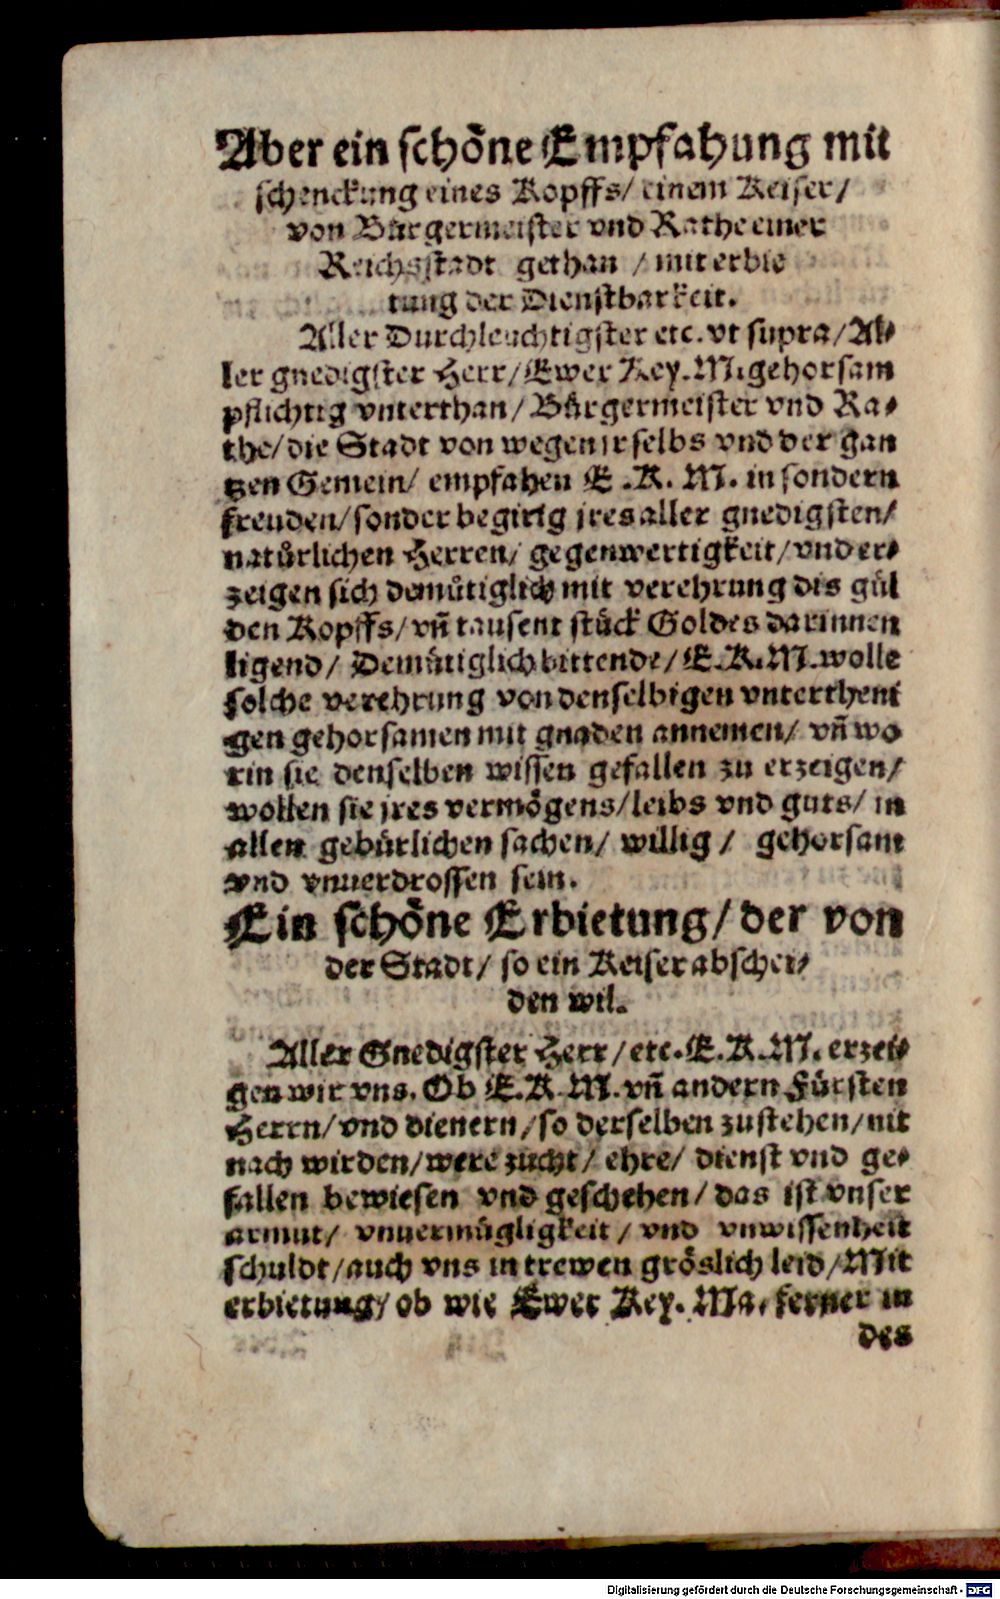 Aber ein schöne Empfahung mit
schenckung eines Kopffs/ einem Keiser/
von Bürgermeister vnd Rathe einer
Reichsstadt gethan / mit erbie
tung der Dienstbarkeit.
Aller Durchleuchtigster etc. vt supra/ Al⸗
ler gnedigster Herr/ Ewer Key. M. gehorsam
pflichtig vnterthan/ Bürgermeister vnd Ra⸗
the/ die Stadt von wegen jr selbs vnd der gan
tzen Gemein/ empfahen E. K. M. in sondern
freuden/ sonder begirig jres aller gnedigsten/
natürlichen Herren/ gegenwertigkeit/ vnd er⸗
zeigen sich demütiglich mit verehrung dis gül
den Kopffs/ vñ tausent stück Goldes darinnen
ligend/ Demütiglich bittende/ E. K. M. wolle
solche verehrung von denselbigen vntertheni
gen gehorsamen mit gnaden annemen/ vñ wo
rin sie denselben wissen gefallen zu erzeigen/
wollen sie jres vermögens/ leibs vnd guts/ in
allen gebürlichen sachen/ willig / gehorsam
vnd vnuerdrossen sein.
Ein schöne Erbietung/ der von
der Stadt/ so ein Keiser abschei⸗
den wil.
Aller Gnedigster Herr/ etc. E. K. M. erzei⸗
gen wir vns. Ob E. K. M. vñ andern Fürsten
Herrn/ vnd dienern/ so derselben zustehen/ nit
nach wirden/ were zucht/ ehre/ dienst vnd ge⸗
fallen bewiesen vnd geschehen/ das ist vnser
armut/ vnuermügligkeit / vnd vnwissenheit
schuldt/ auch vns in trewen gröslich leid/ Mit
erbietung/ ob wie Ewer Key. Ma. ferner in
des
Digitalisierung gefördert durch die Deutsche Forschungsgemeinschaft - DFG